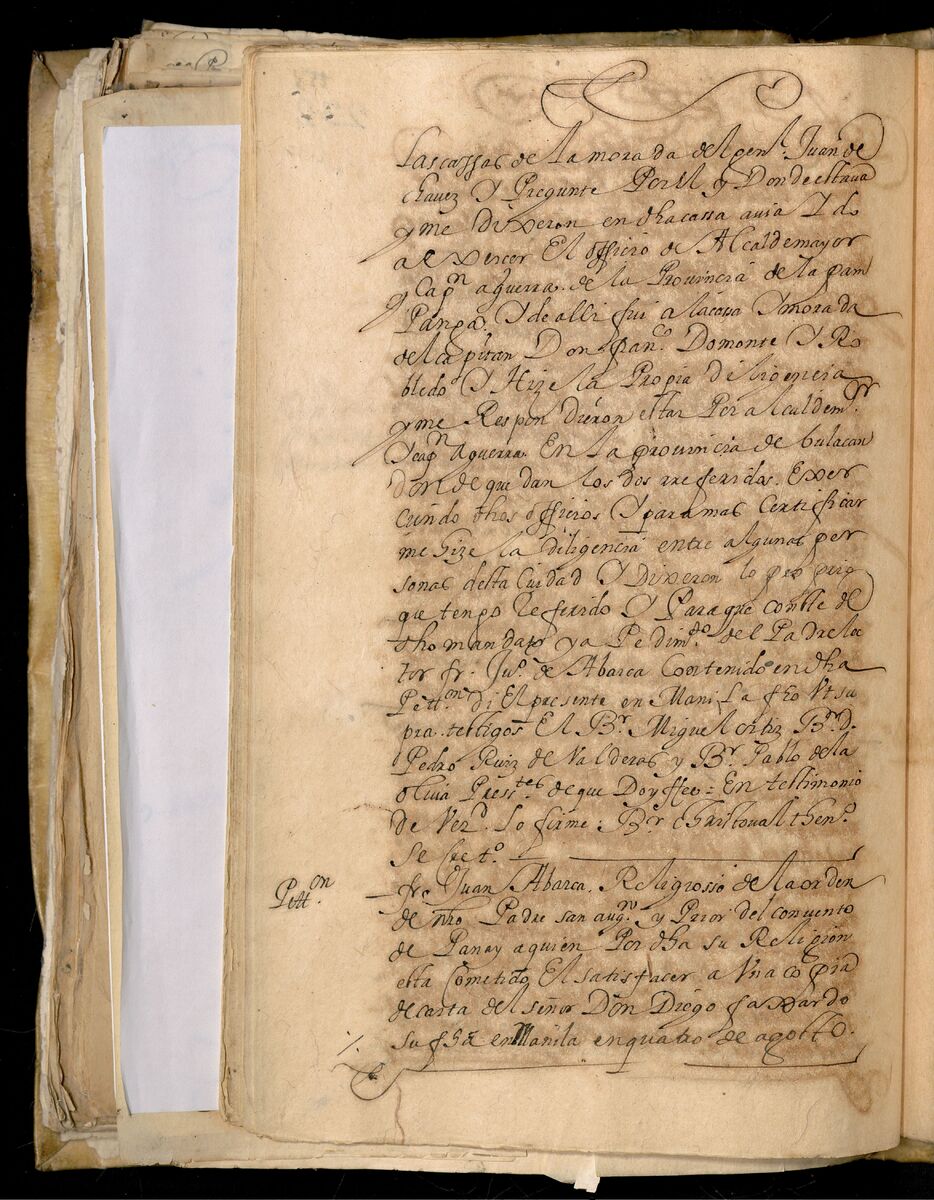 Las cassas de la morada del gen.l Juan de
chavez Y Pregunte Por el y Donde estava
y me Dixeron en dha cassa avia Ydo
a exercer El officio de Alcaldemayor
y Cap.n aguerra. de la Provincia de la pam
Panga. Y de alli fui a la cassa Y morada
del capitan Don fran.co Domonte Y Ro
bledo Y Hize la Propia diligencia
y me Respondieron estar Por alcaldem.or
Y cap.n aguerra. En la provincia de bulacan
donde quedan los dos rreferidos. Exer
ciendo dhos officios Y para mas Certificar
me hize la diligencia entre algunas per
sonas desta Ciudad Y Dixeron lo propio
que tengo Referido Y Para que conste de
dho mandato y a Pedim.to del Padre lec
tor fr. Ju.o de Abarca Contenido en dha
Pett.on di El presente en Manila fho Vt su
pra. testigos El B.r Miguel ortiz B.r D.
Pedro Ruiz de Valderas y B.r Pablo de la
oliva Press.tes de que Doy ffee = En testimonio
de Ver.d Lo firme: B.r Christoval then.o
Secret.o
Pett.on
fr. Juan Abarca. Religiosso de la orden
de nro Padre san aug.n y Prior del convento
de Panay a quien Por dha su Religion
esta Cometido El satisfacer a Vna copia
de carta del señor Don Diego faxardo
su fha en Manila en quatro de agosto.